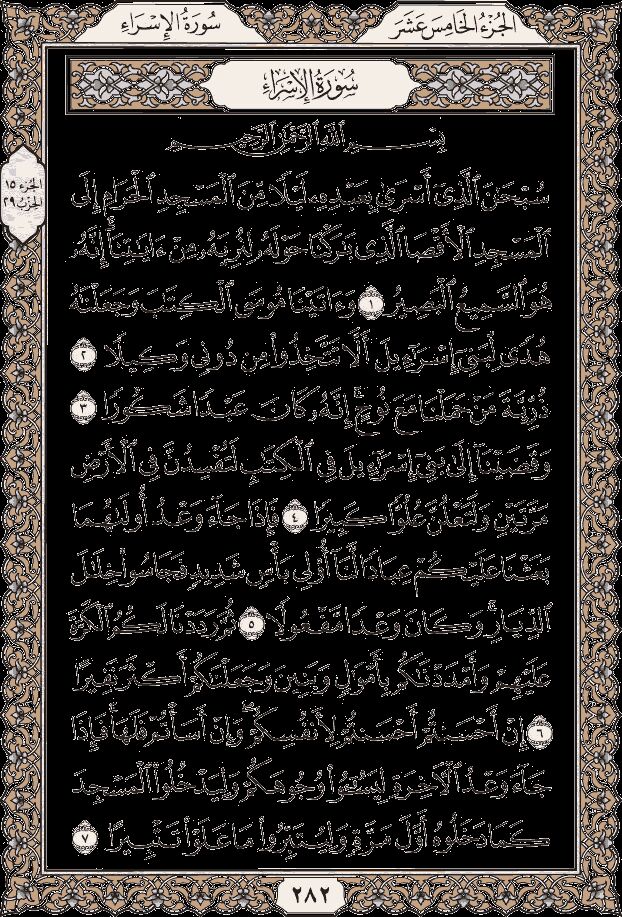 الجُزْءُ الخَامِسَ عَشَرَ
سُورَةُ الإِسْرَاءِ
سُورَةُ الإِسْرَاءِ
بِسْمِ ٱللَّهِ ٱلرَّحْمَٰنِ ٱلرَّحِيمِ
الجزء ١٥
الحزب ٢٩
سُبْحَٰنَ ٱلَّذِىٓ أَسْرَىٰ بِعَبْدِهِۦ لَيْلًا مِّنَ ٱلْمَسْجِدِ ٱلْحَرَامِ إِلَى
ٱلْمَسْجِدِ ٱلْأَقْصَا ٱلَّذِى بَٰرَكْنَا حَوْلَهُۥ لِنُرِيَهُۥ مِنْ ءَايَٰتِنَآ إِنَّهُۥ
هُوَ ٱلسَّمِيعُ ٱلْبَصِيرُ ١ وَءَاتَيْنَا مُوسَى ٱلْكِتَٰبَ وَجَعَلْنَٰهُ
هُدًى لِّبَنِىٓ إِسْرَٰٓءِيلَ أَلَّا تَتَّخِذُوا۟ مِن دُونِى وَكِيلًا ٢
ذُرِّيَّةَ مَنْ حَمَلْنَا مَعَ نُوحٍ إِنَّهُۥ كَانَ عَبْدًا شَكُورًا ٣
وَقَضَيْنَآ إِلَىٰ بَنِىٓ إِسْرَٰٓءِيلَ فِى ٱلْكِتَٰبِ لَتُفْسِدُنَّ فِى ٱلْأَرْضِ
مَرَّتَيْنِ وَلَتَعْلُنَّ عُلُوًّا كَبِيرًا ٤ فَإِذَا جَآءَ وَعْدُ أُولَىٰهُمَا
بَعَثْنَا عَلَيْكُمْ عِبَادًا لَّنَآ أُو۟لِى بَأْسٍ شَدِيدٍ فَجَاسُوا۟ خِلَٰلَ
ٱلدِّيَارِ وَكَانَ وَعْدًا مَّفْعُولًا ٥ ثُمَّ رَدَدْنَا لَكُمُ ٱلْكَرَّةَ
عَلَيْهِمْ وَأَمْدَدْنَٰكُم بِأَمْوَٰلٍ وَبَنِينَ وَجَعَلْنَٰكُمْ أَكْثَرَ نَفِيرًا
٦ إِنْ أَحْسَنتُمْ أَحْسَنتُمْ لِأَنفُسِكُمْ وَإِنْ أَسَأْتُمْ فَلَهَا فَإِذَا
جَآءَ وَعْدُ ٱلْءَاخِرَةِ لِيَسُۥٓـُٔوا۟ وُجُوهَكُمْ وَلِيَدْخُلُوا۟ ٱلْمَسْجِدَ
كَمَا دَخَلُوهُ أَوَّلَ مَرَّةٍ وَلِيُتَبِّرُوا۟ مَا عَلَوْا۟ تَتْبِيرًا ٧
٢٨٢